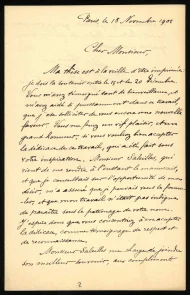 Paris le 18 Novembre 1902
Cher Monsieur,
Ma thèse est à la veille d'être imprimée
je dois la soutenir entre le 15 et le 20 Décembre
Vous m'avez témoigné tant de bienveillance, et
m'avez aidé si puissamment dans ce travail,
que j'ose solliciter de vous encore une nouvelle
faveur. Vous me feriez un vif plaisir, et un
grand honneur, si vous vouliez bien accepter
la dédicace de ce travail, qui a été fait sous
votre inspiration. Monsieur Sabatier, qui
vient de me rendre, à l'instant le manuscrit
et que je consultais sur l'opportunité de mon
désir, m'a assuré que je pouvais vous le
et que mon travail n'était pas indigne
de paraître sous le patronage de votre nom.
J'espère donc que vous consentirez à en accepter
la dédicace, comme témoignage de respect et
de reconnaissance.
Monsieur Sabatier me charge de joindre
son meilleur souvenir, aux compliments